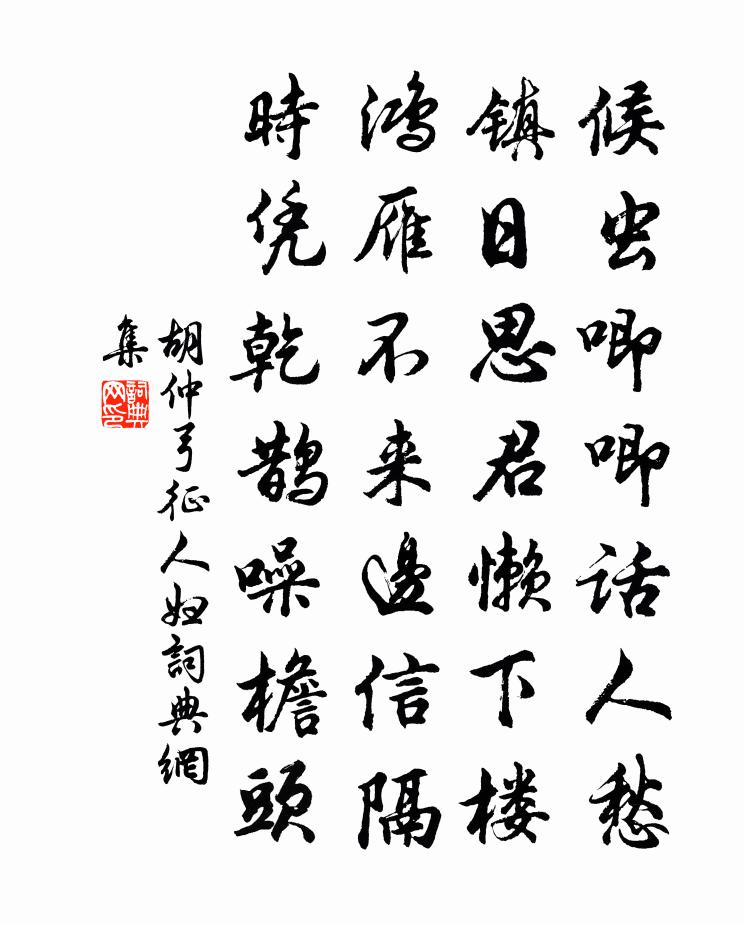 候虫唧唧话人愁
镇日思君懒下楼
鸿雁不来邊信隔
時凭乾鹊噪檐頭
胡仲弓征人妇詞典網
集
詞典
网印